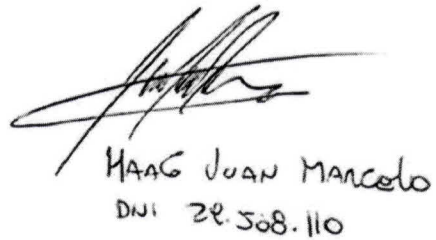 HAAG JUAN MARCELO
DNI 29.508.110